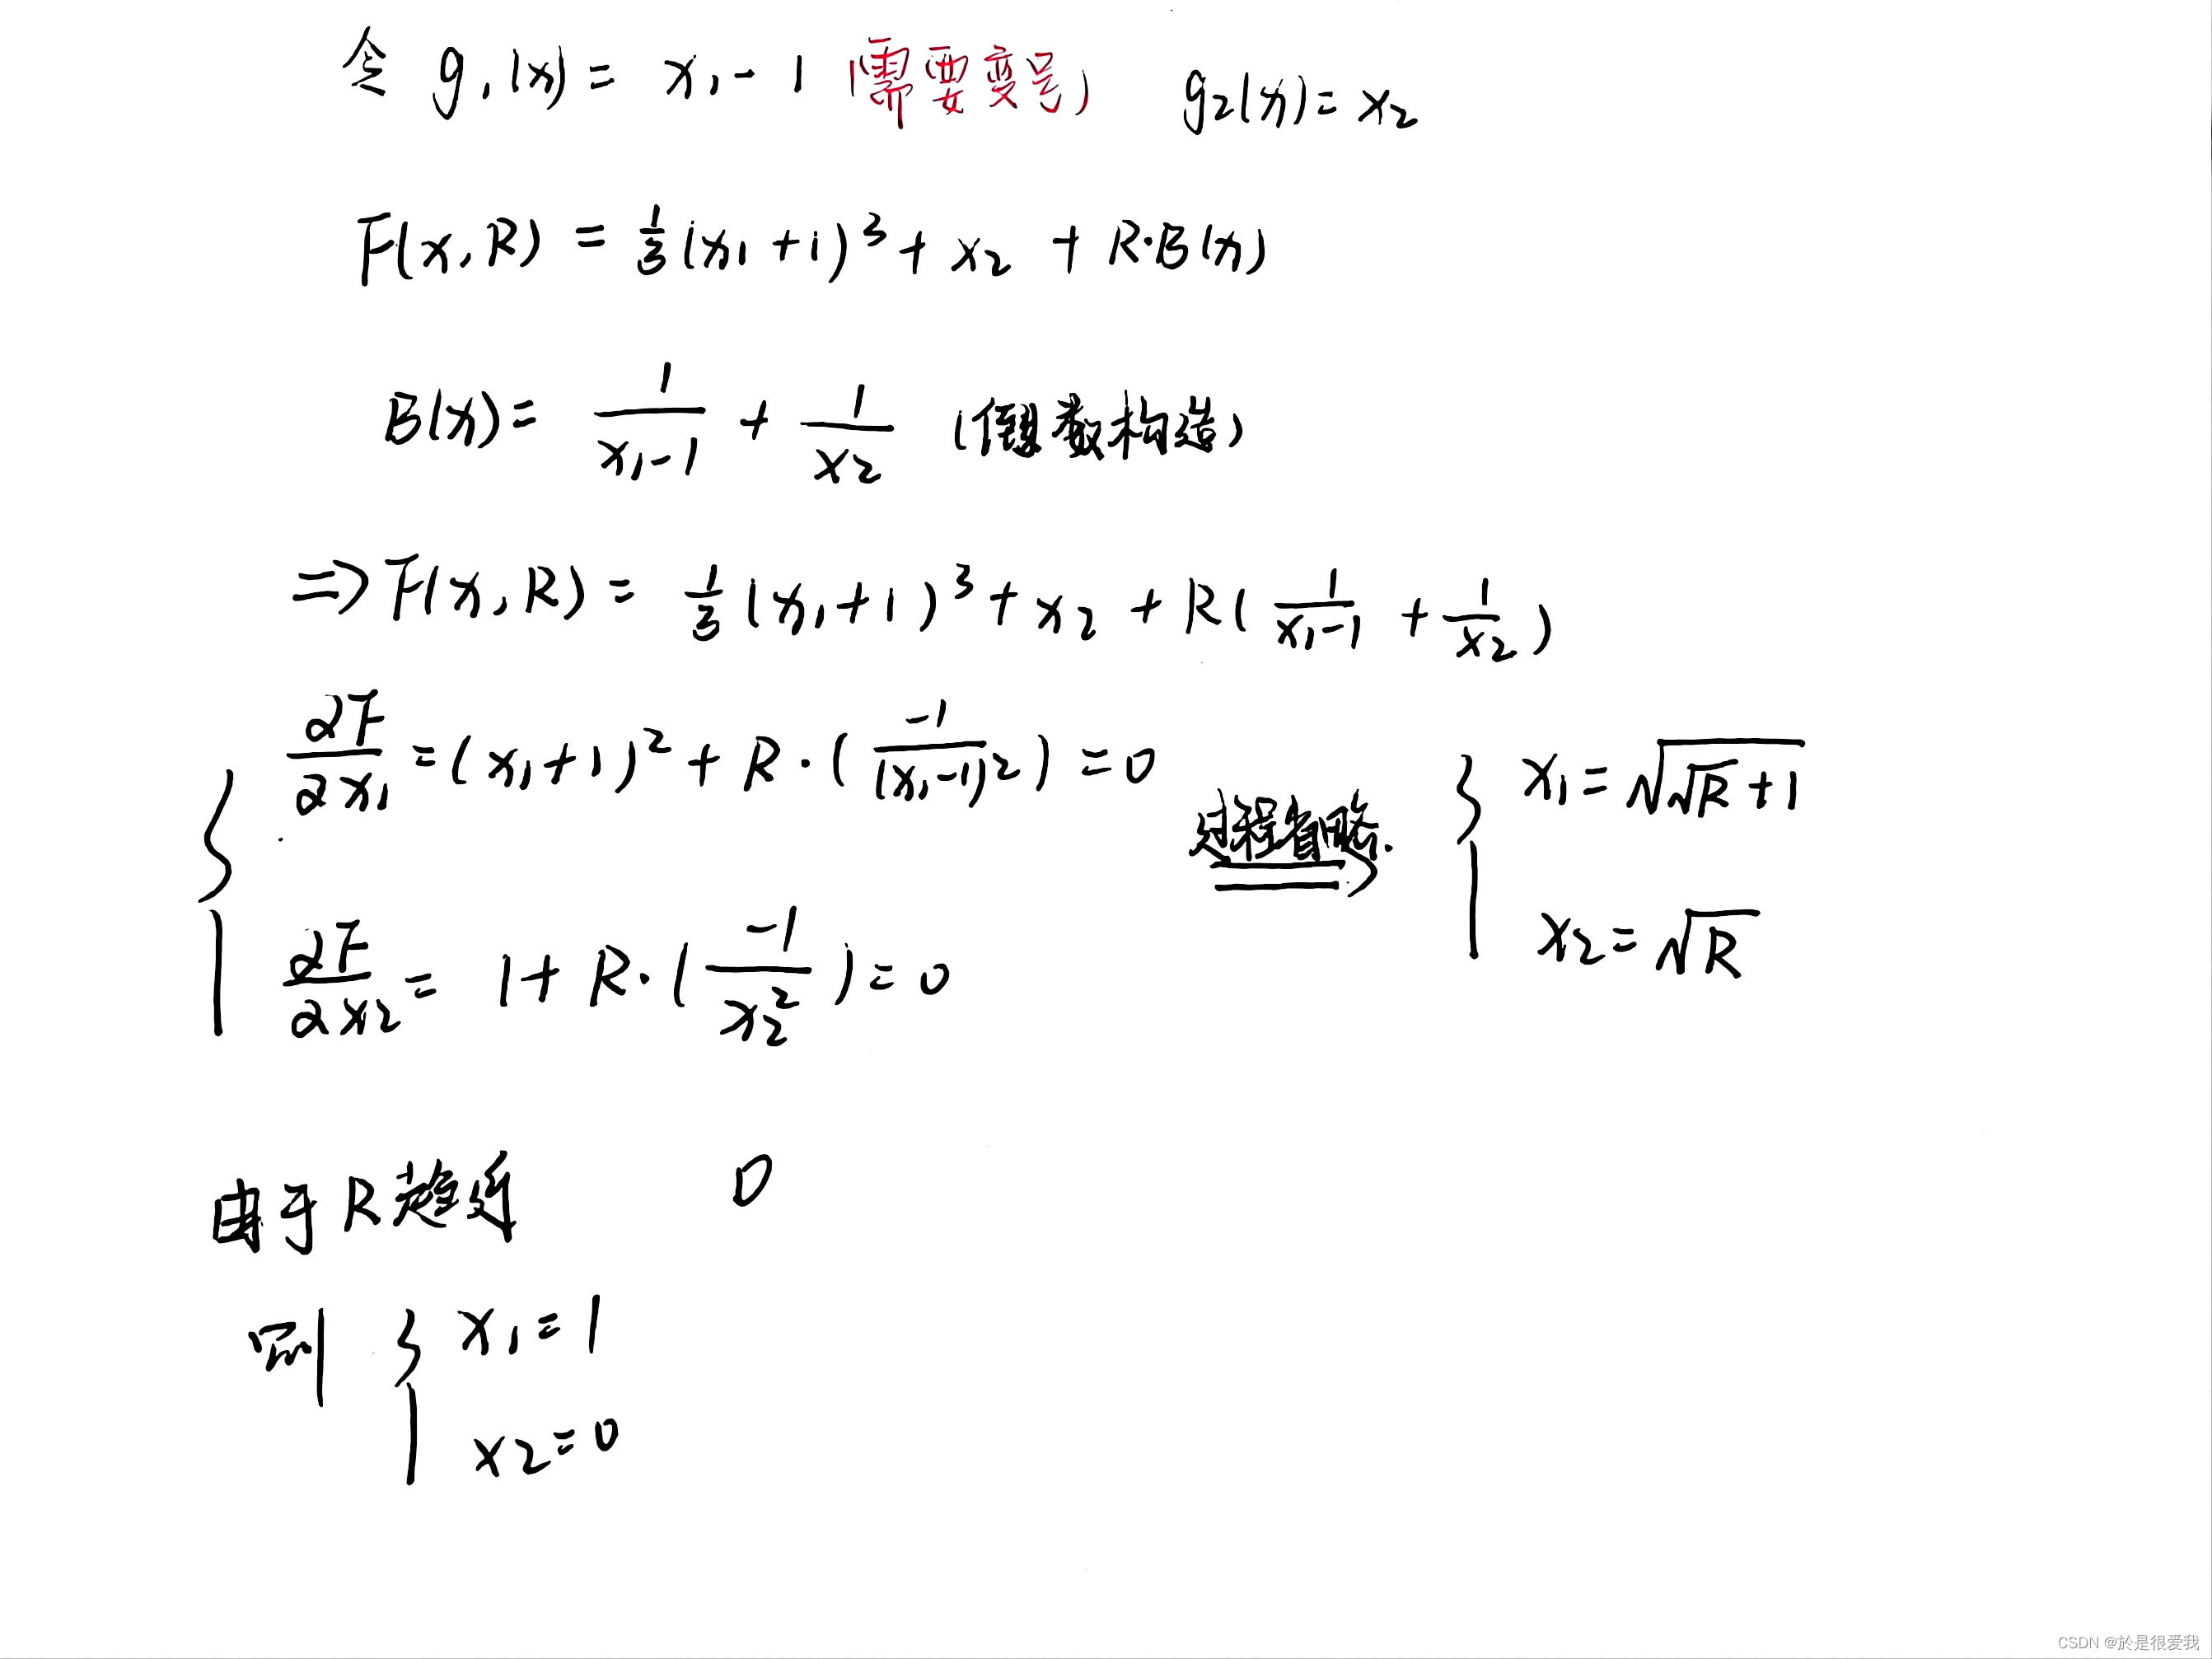 令 g₁(x) = x₁ - 1 (需要变号) g₂(x) = x₂
F(x, R) = 1/3 (x₁ + 1)³ + x₂ + R·B(x)
B(x) = 1/(x₁-1) + 1/x₂ (倒数构造)
⇒ F(x, R) = 1/3 (x₁+1)³ + x₂ + R( 1/(x₁-1) + 1/x₂ )
{ ∂F/∂x₁ = (x₁+1)² + R · ( -1/(x₁-1)² ) = 0
∂F/∂x₂ = 1 + R· ( -1/x₂² ) = 0
过程省略.
{ x₁ = √(√R + 1)
x₂ = √R
由于 R 趋近 0
则 { x₁ = 1
x₂ = 0
CSDN @於是很爱我